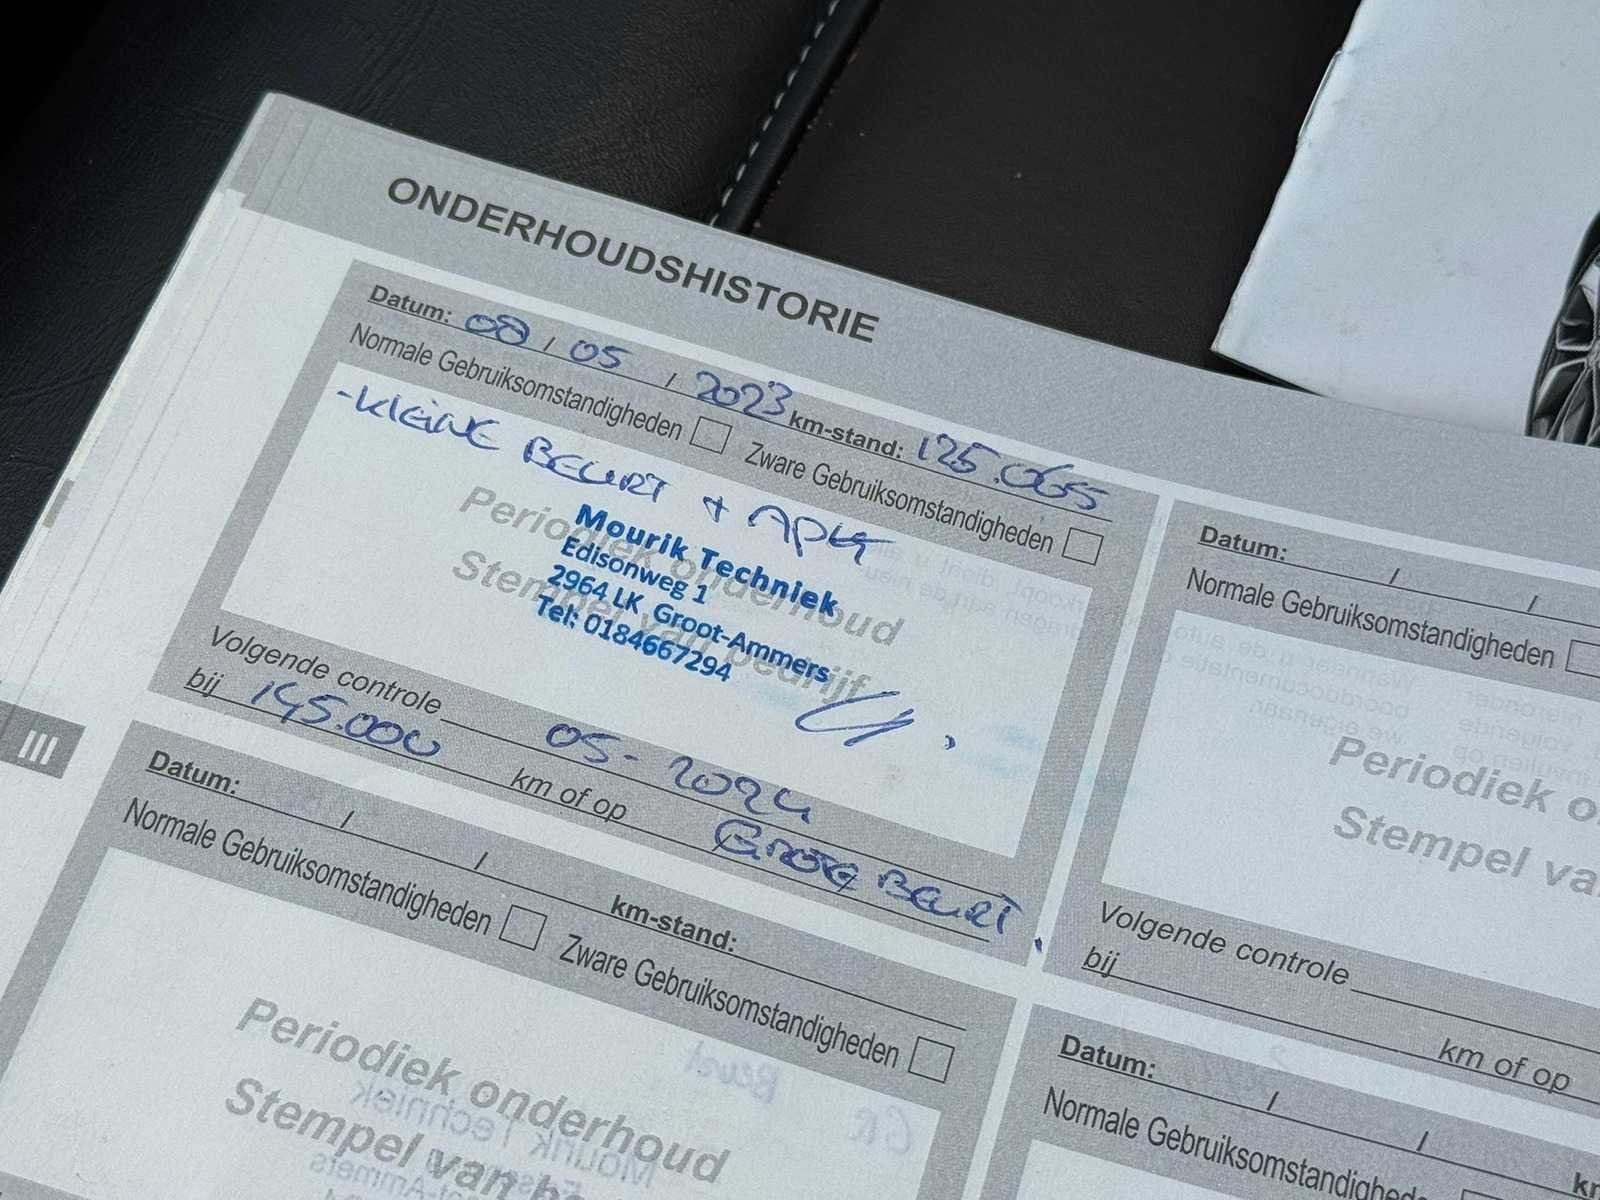 ONDERHOUDSHISTORIE
Datum: 08 / 05 / 2023 km-stand: 125.065
Normale Gebruiksomstandigheden Zware Gebruiksomstandigheden
-KLEINE BEURT + APK
Periodiek onderhoud
Stempel van bedrijf
Mourik Techniek
Edisonweg 1
2964 LK Groot-Ammers
Tel: 0184667294
Volgende controle 05-2024
bij 145.000 km of op GROTE BEURT.
Datum: / / km-stand:
Normale Gebruiksomstandigheden Zware Gebruiksomstandigheden
Periodiek onderhoud
Stempel van
Datum: / /
Normale Gebruiksomstandigheden
Periodiek
Stempel
Volgende controle
bij km of op
Datum: / /
Normale Gebruiksomstandigheden
III